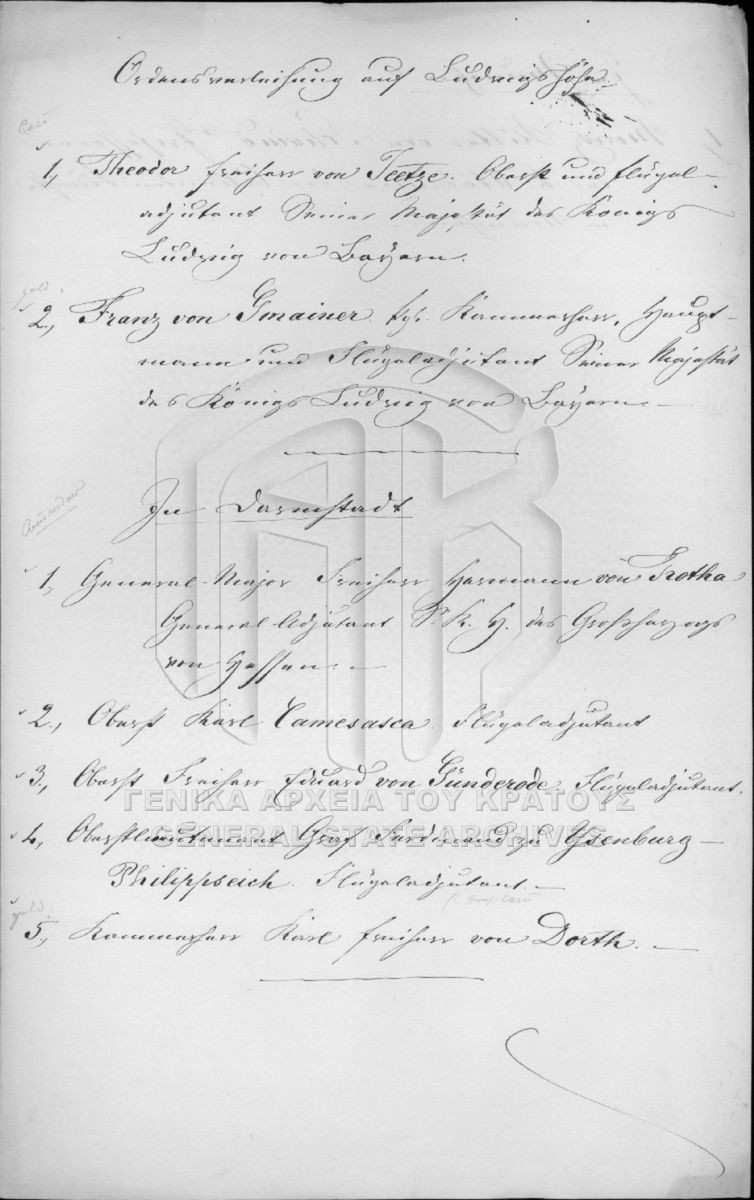 Ordensverleihung auf Ludwigshöhe
1, Theodor Freiherr von Jeetze. Oberst und Flügel-
adjutant Seiner Majestät des Königs
Ludwig von Bayern.
gold.
2, Franz von Gmainer. kgl. Kammerherr, Haupt-
mann und Flügeladjutant Seiner Majestät
des Königs Ludwig von Bayern —
In Darmstadt
1, General-Major Freiherr Hermann von Trotha
General Adjutant S. K. H. des Großherzogs
von Hessen. —
2., Oberst Karl Camesasca. Flügeladjutant
3., Oberst Freiherr Eduard von Günderode. Flügeladjutant.
ΓΕΝΙΚΑ ΑΡΧΕΙΑ ΤΟΥ ΚΡΑΤΟΥΣ
GENERAL STATE ARCHIVES
4, Oberstlieutenant Graf Ferdinand zu Ysenburg —
Philippseich. Flügeladjutant. —
gold.
5., Kammerherr Karl Freiherr von Dorth. —